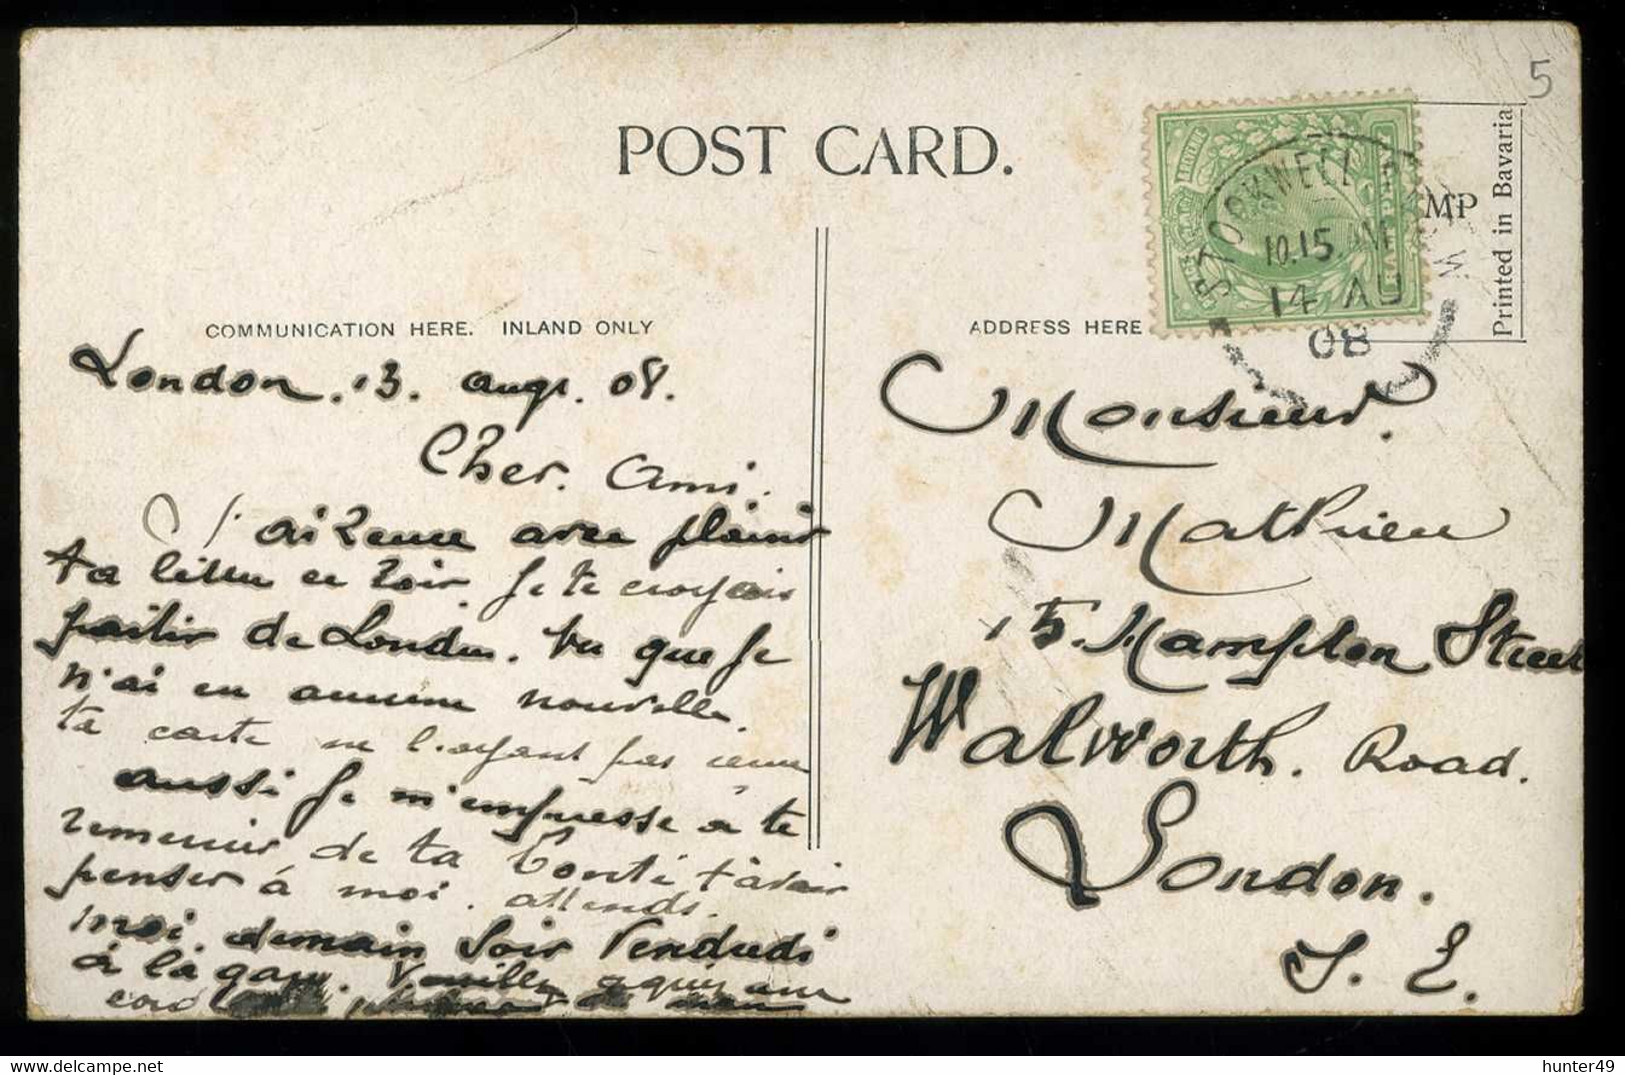 5
POST CARD.
STOCKWELL
10.15 AM
14 AU
08
MP
Printed in Bavaria
COMMUNICATION HERE. INLAND ONLY
ADDRESS HERE
London. 13. augt. 08.
Cher. Ami.
avec plaisir
ta lettre ce soir. Je te croyais
partir de Londres. Vu que je
n'ai eu aucune nouvelle.
ta carte ne l'ayant pas
aussi je m'empresse à te
remercier de ta Bonté t'avoir
penser à moi. attends.
moi. demain Soir Vendredi
à la gare.
Monsieur.
Mathieu
15. Hampton Street
Walworth. Road.
London.
S. E.
hunter49